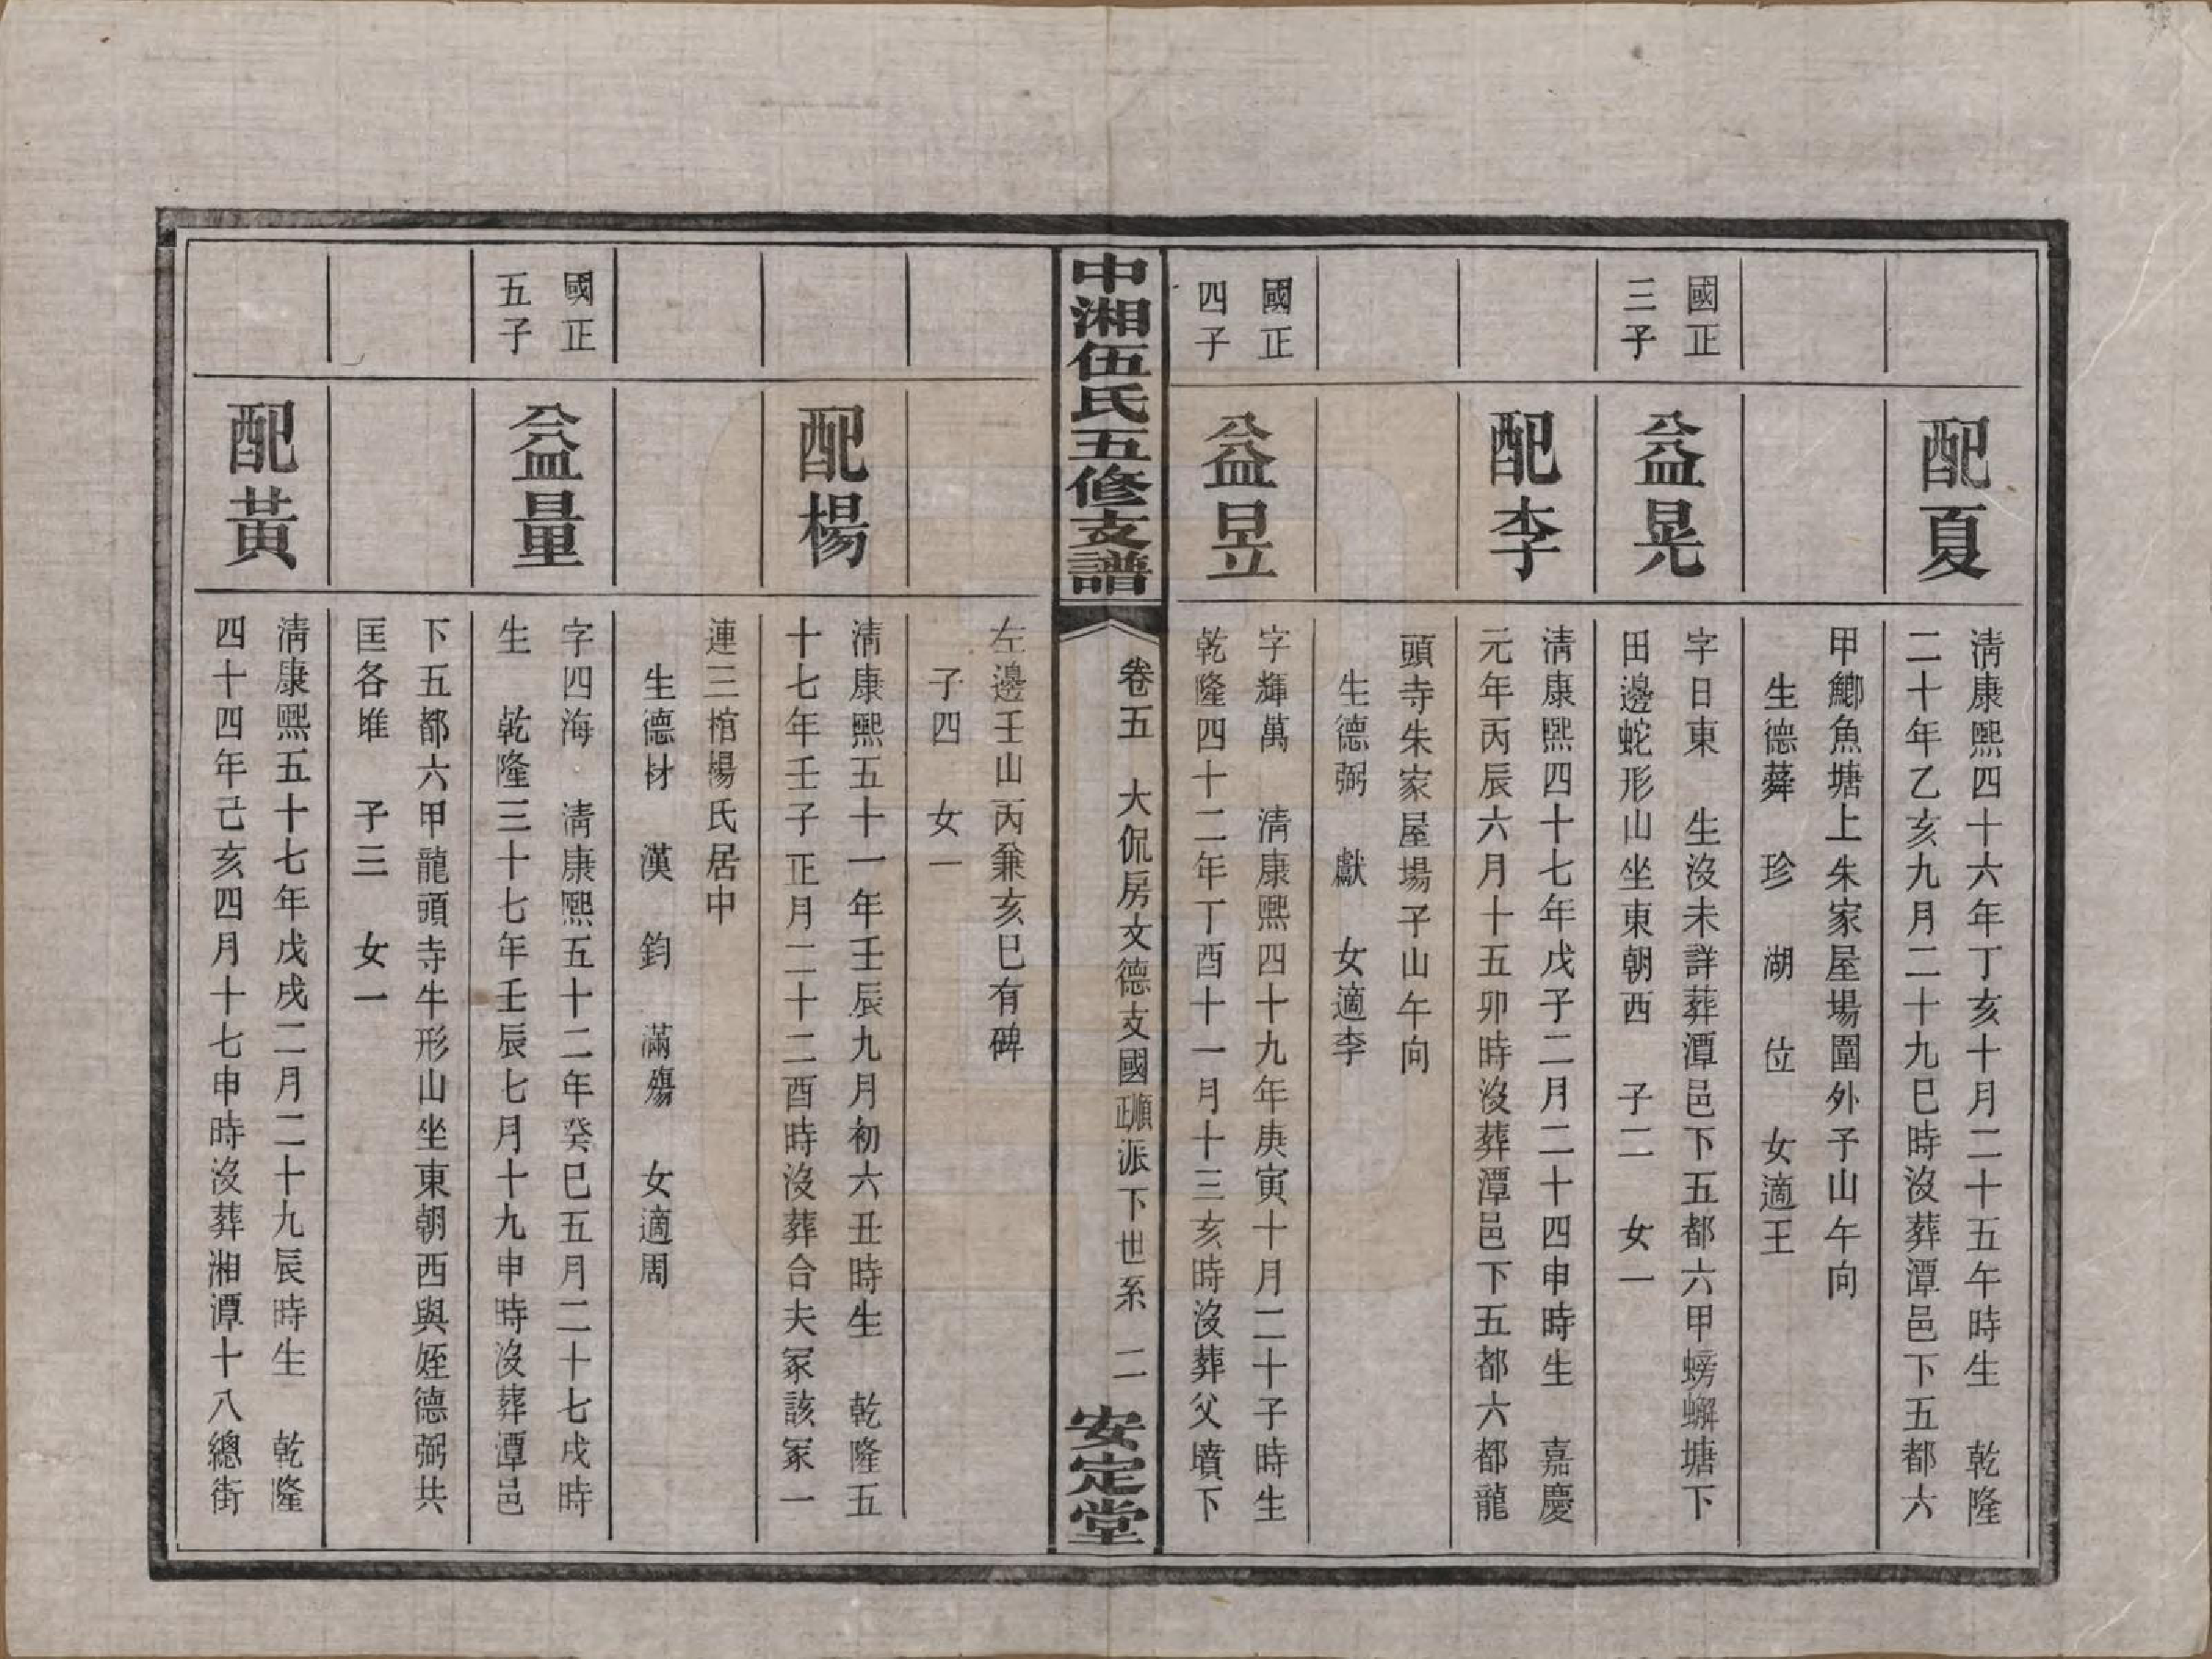 配夏
清康熙四十六年丁亥十月二十五午時生　乾隆
二十年乙亥九月二十九巳時沒葬潭邑下五都六
甲鰤魚塘上朱家屋場圍外子山午向
生德蕣　珍　湖　位　女適王
國正
三子
益晃
字日東　生沒未詳葬潭邑下五都六甲螃蠏塘下
田邊蛇形山坐東朝西　子二　女一
配李
清康熙四十七年戊子二月二十四申時生　嘉慶
元年丙辰六月十五卯時沒葬潭邑下五都六都龍
頭寺朱家屋場子山午向
生德弼　獻　女適李
國正
四子
益昱
字輝萬　清康熙四十九年庚寅十月二十子時生
乾隆四十二年丁酉十一月十三亥時沒葬父墳下
中湘伍氏五修支譜
卷五　大侃房文德支國正順派下世系　二
安定堂
左邊壬山丙兼亥巳有碑
子四　女一
配楊
清康熙五十一年壬辰九月初六丑時生　乾隆五
十七年壬子正月二十二酉時沒葬合夫冢該冢一
連三棺楊氏居中
生德材　漢　鈞　滿殤　女適周
國正
五子
益量
字四海　清康熙五十二年癸巳五月二十七戌時
生　乾隆三十七年壬辰七月十九申時沒葬潭邑
下五都六甲龍頭寺牛形山坐東朝西與姪德弼共
匡各堆　子三　女一
配黃
清康熙五十七年戊戌二月二十九辰時生　乾隆
四十四年己亥四月十七申時沒葬湘潭十八總街